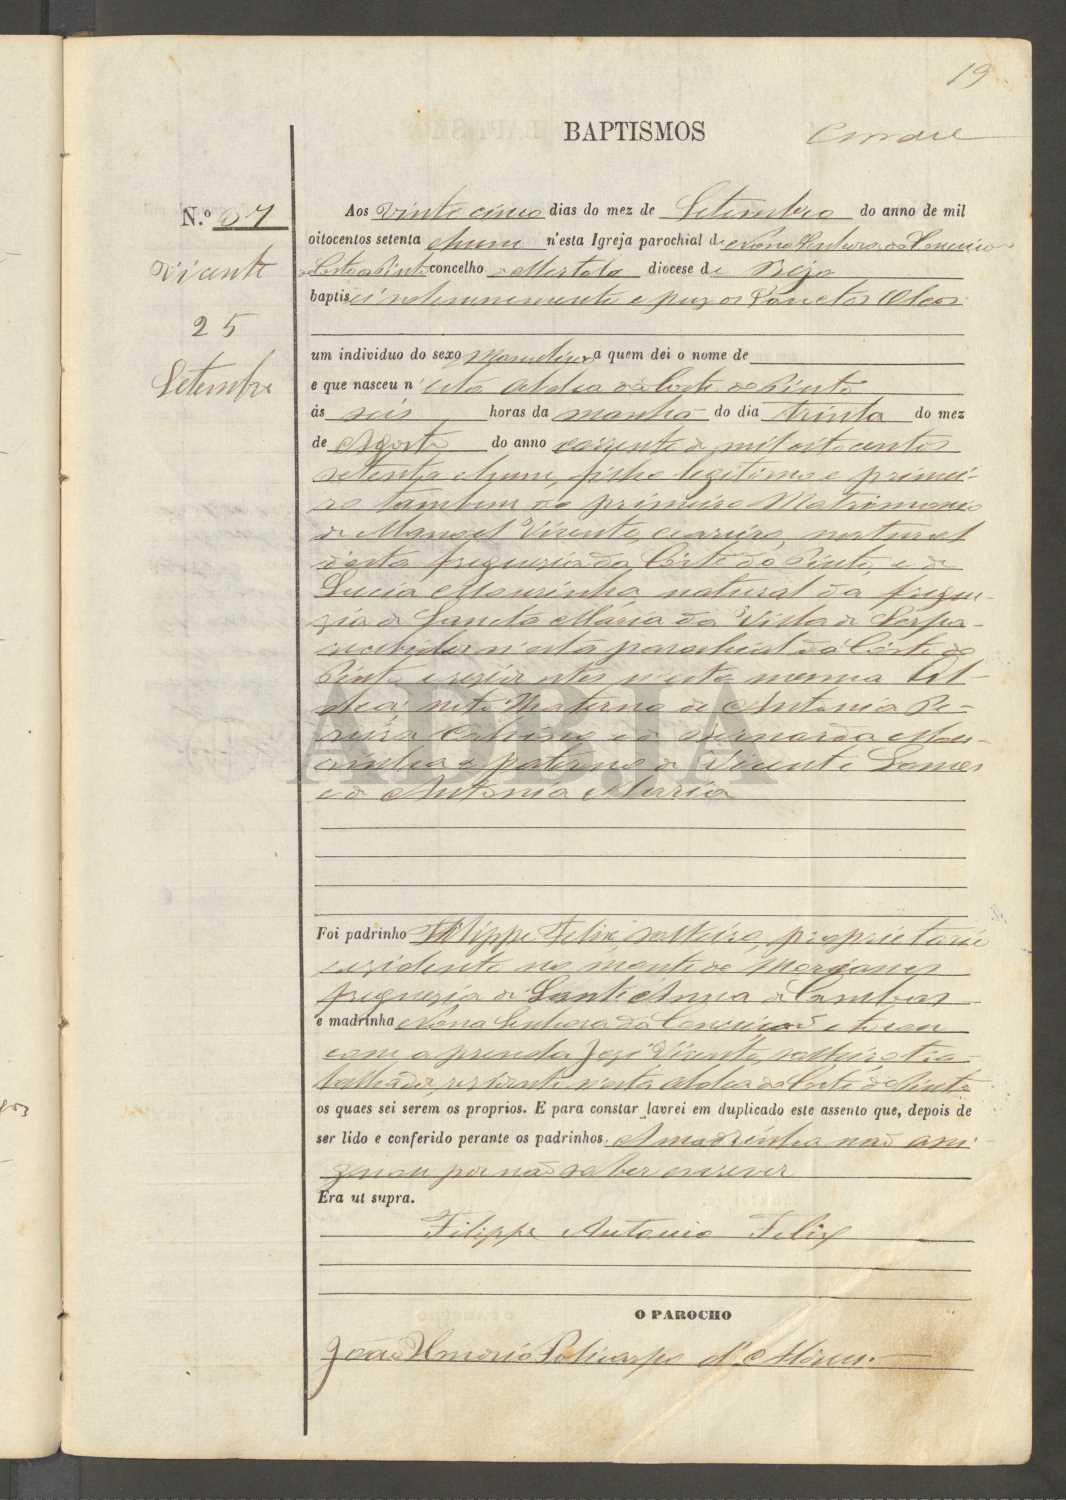 19
BAPTISMOS
N.º 37
Vicente
25
Setembro
Aos vinte cinco dias do mez de Setembro do anno de mil
oitocentos setenta e hum n'esta Igreja parochial de Nossa Senhora da Conceicão
da Corte do Pinto concelho de Mertola diocese de Beja
baptisei solemnemente e puz os Sanctos Oleos
um individuo do sexo Masculino a quem dei o nome de
e que nasceu n'esta Aldea da Corte do Pinto
ás seis horas da manhã do dia trinta do mez
de Agosto do anno corrente de mil oito centos
setenta e hum, filho legitimo e primei-
ro tambem do primeiro Matrimonio
de Manoel Vicente, natural
d'esta freguesia da Côrte do Pinto, e de
Lucia Mourinha, natural da fregue-
zia de Sancta Maria da Villa de Serpa,
recebidos n'esta parochial da Côrte do
Pinto e residentes n'esta mesma Al-
dea; neto Materno de Antonio Pe-
reira e de Bernarda Mou-
rinha e paterno de Vicente Gomes
e de Antonia Maria
ADBJA
Foi padrinho Filippe Felix solteiro, proprietario
residente no monte de
freguezia de Sant'Anna de Cambas
e madrinha Nossa Senhora da Conceição e tocou
com a prenda José Vicente, solteiro tra-
balhador, residente n'esta Aldea da Corte do Pinto
os quaes sei serem os proprios. E para constar lavrei em duplicado este assento que, depois de
ser lido e conferido perante os padrinhos. A madrinha não assi-
gnou por não saber escrever
Era ut supra.
Filippe Antonio Felix
O PAROCHO
João Policarpo d'